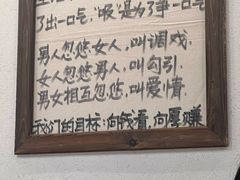 了出一口气，"咽"是为了争一口气
男人忽悠女人，叫调戏，
女人忽悠男人，叫勾引，
男女相互忽悠，叫爱情。
我们的目标：向钱看，向厚赚